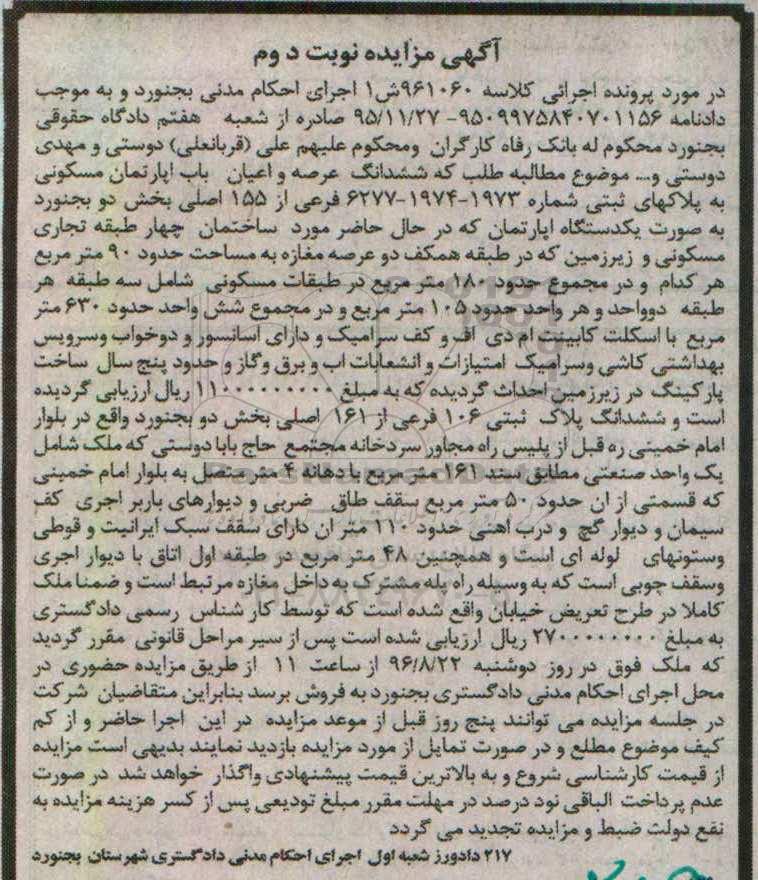 آگهی مزایده نوبت دوم
در مورد پرونده اجرائی کلاسه ۹۶۱۰۶۰ش۱ اجرای احکام مدنی بجنورد و به موجب
دادنامه ۹۵۰۹۹۷۵۸۴۰۷۰۱۱۵۶- ۹۵/۱۱/۲۷ صادره از شعبه هفتم دادگاه حقوقی
بجنورد محکوم له بانک رفاه کارگران ومحکوم علیهم علی (قربانعلی) دوستی و مهدی
دوستی و... موضوع مطالبه طلب که ششدانگ عرصه و اعیان باب اپارتمان مسکونی
به پلاکهای ثبتی شماره ۱۹۷۳-۱۹۷۴-۶۲۷۷ فرعی از ۱۵۵ اصلی بخش دو بجنورد
به صورت یکدستگاه اپارتمان که در حال حاضر مورد ساختمان چهار طبقه تجاری
مسکونی و زیرزمین که در طبقه همکف دو عرصه مغازه به مساحت حدود ۹۰ متر مربع
هر کدام و در مجموع حدود ۱۸۰ متر مربع در طبقات مسکونی شامل سه طبقه هر
طبقه دوواحد و هر واحد حدود ۱۰۵ متر مربع و در مجموع شش واحد حدود ۶۳۰ متر
مربع با اسکلت کابینت ام دی اف و کف سرامیک و دارای اسانسور و دوخواب وسرویس
بهداشتی کاشی وسرامیک امتیازات و انشعابات اب و برق وگاز و حدود پنج سال ساخت
پارکینگ در زیرزمین احداث گردیده که به مبلغ ۱۱۰۰۰۰۰۰۰۰۰ ریال ارزیابی گردیده
است و ششدانگ پلاک ثبتی ۱۰۶ فرعی از ۱۶۱ اصلی بخش دو بجنورد واقع در بلوار
امام خمینی ره قبل از پلیس راه مجاور سردخانه مجتمع حاج بابا دوستی که ملک شامل
یک واحد صنعتی مطابق سند ۱۶۱ متر مربع با دهانه ۴ متر متصل به بلوار امام خمینی
که قسمتی از ان حدود ۵۰ متر مربع سقف طاق ضربی و دیوارهای باربر اجری کف
سیمان و دیوار گچ و درب اهنی حدود ۱۱۰ متر ان دارای سقف سبک ایرانیت و قوطی
وستونهای لوله ای است و همچنین ۴۸ متر مربع در طبقه اول اتاق با دیوار اجری
وسقف چوبی است که به وسیله راه پله مشترک به داخل مغازه مرتبط است و ضمنا ملک
کاملا در طرح تعریض خیابان واقع شده است که توسط کار شناس رسمی دادگستری
به مبلغ ۲۷۰۰۰۰۰۰۰۰ ریال ارزیابی شده است پس از سیر مراحل قانونی مقرر گردید
که ملک فوق در روز دوشنبه ۹۶/۸/۲۲ از ساعت ۱۱ از طریق مزایده حضوری در
محل اجرای احکام مدنی دادگستری بجنورد به فروش برسد بنابراین متقاضیان شرکت
در جلسه مزایده می توانند پنج روز قبل از موعد مزایده در این اجرا حاضر و از کم
کیف موضوع مطلع و در صورت تمایل از مورد مزایده بازدید نمایند بدیهی است مزایده
از قیمت کارشناسی شروع و به بالاترین قیمت پیشنهادی واگذار خواهد شد در صورت
عدم پرداخت الباقی نود درصد در مهلت مقرر مبلغ تودیعی پس از کسر هزینه مزایده به
نفع دولت ضبط و مزایده تجدید می گردد
۲۱۷ دادورز شعبه اول اجرای احکام مدنی دادگستری شهرستان بجنورد